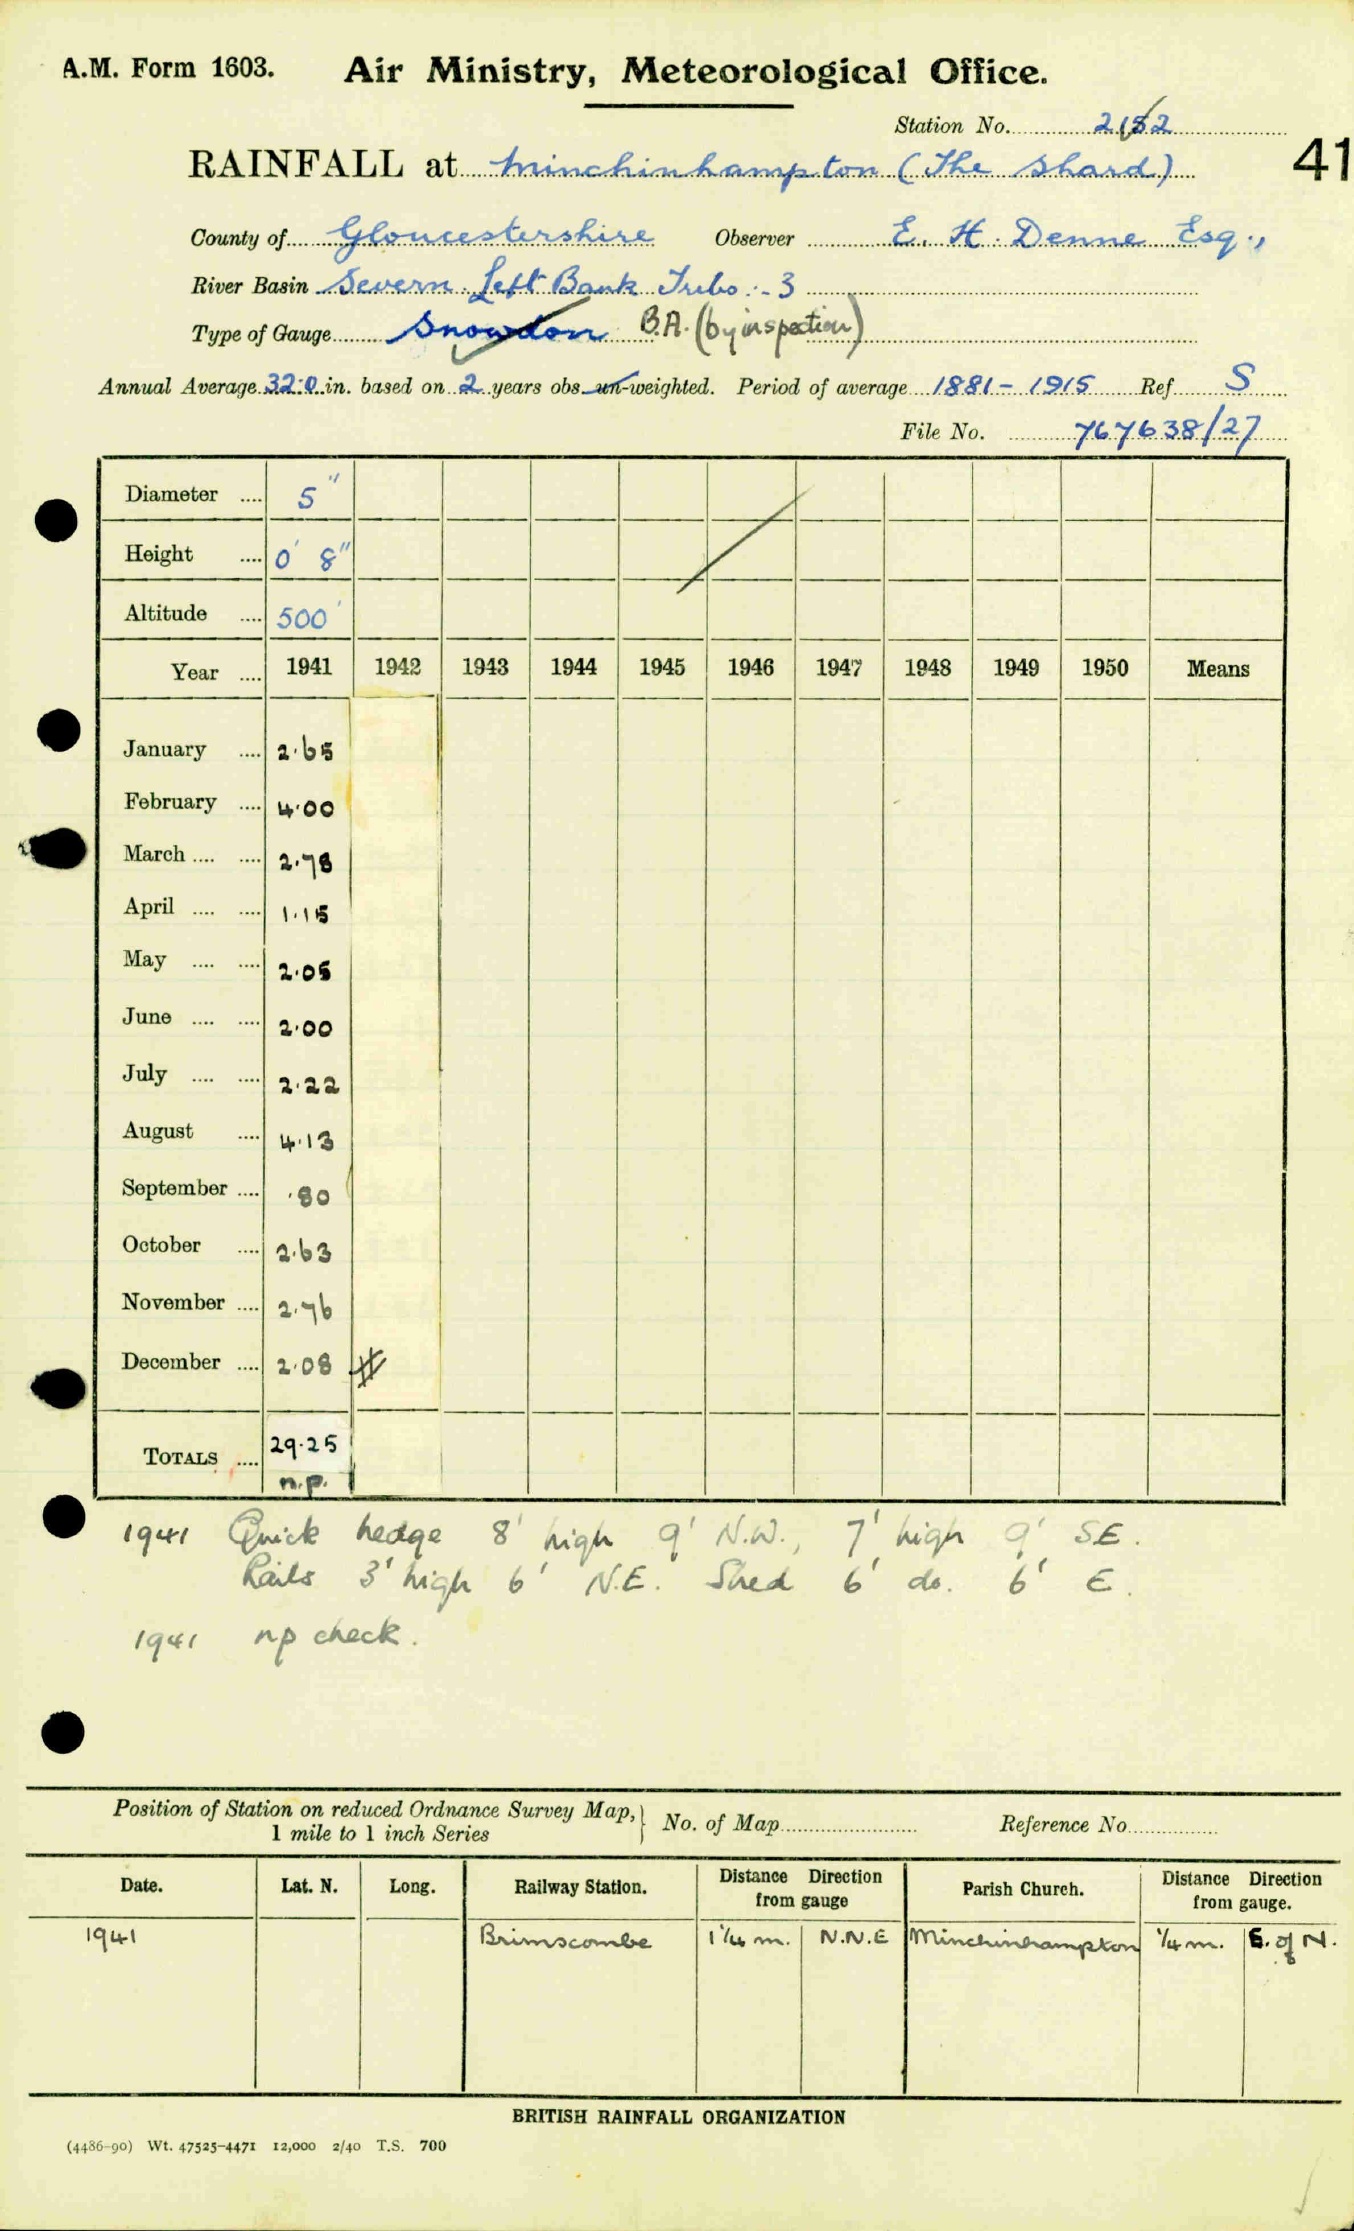 A.M. Form 1603. Air Ministry, Meteorological Office.
Station No. 2152
41
RAINFALL at Minchinhampton (The Shard)
County of Gloucestershire Observer E. H. Denne Esq.,
River Basin Severn. Left Bank Tribs:- 3
Type of Gauge Snowdon B.A. (by inspection)
Annual Average 32.0 in. based on 2 years obs. un-weighted. Period of average 1881 - 1915 Ref S
File No. 767638/27
Diameter .... 5"
Height .... 0' 8"
Altitude .... 500'
Year .... 1941 1942 1943 1944 1945 1946 1947 1948 1949 1950 Means
January .... 2.65
February .... 4.00
March .... .... 2.78
April .... .... 1.15
May .... .... 2.05
June .... .... 2.00
July .... .... 2.22
August .... 4.13
September .... .80
October .... 2.63
November .... 2.76
December .... 2.08
TOTALS .... 29.25
n.p.
1941 Quick hedge 8' high 9' N.W., 7' high 9' SE.
Rails 3' high 6' N.E. Shed 6' do. 6' E.
1941 np check.
Position of Station on reduced Ordnance Survey Map, 1 mile to 1 inch Series } No. of Map Reference No.
Date. Lat. N. Long. Railway Station. Distance Direction from gauge Parish Church. Distance Direction from gauge.
1941 Brimscombe 1 1/4 m. N.N.E Minchinhampton 1/4 m. E. of N.
BRITISH RAINFALL ORGANIZATION
(4486-90) Wt. 47525-4471 12,000 2/40 T.S. 700